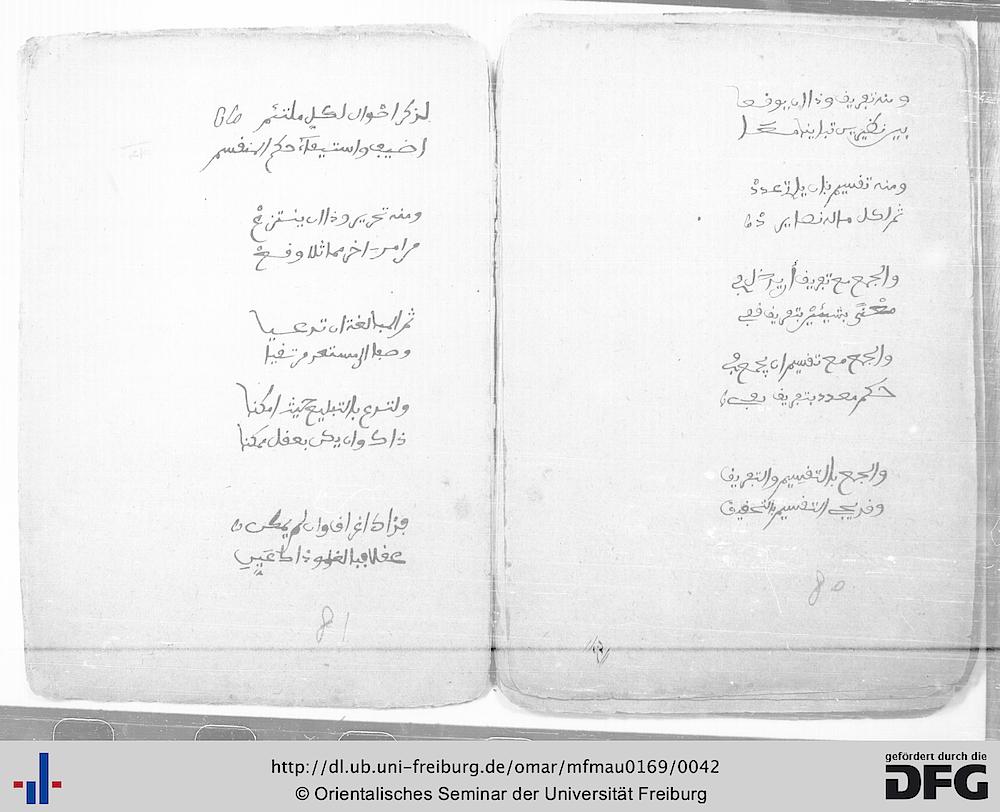 ومنه تعريف وذا ان يوقعا
بين نظيرين تباينا معا
ومنه تقسيم بان يلا تعدد
ثم لكل ماله نصا يرد
والجمع مع تعريف أن يدخل في
معنى بشيئين تعريف قفي
والجمع مع تقسيم ان يجمع في
حكم معدد بتعريف يفي
والجمع بالتقسيم والتعريف
وقد يجي التقسيم بالتحقيق
80
لذكر احوال لكل ملتئم
اضيف واستيفاء حكم المنقسم
ومنه تجريد وذا ان ينتزع
من امر اخر مماثلا وقع
ثم المبالغة ان تدعيا
وصفا
ولتدع بالتبليغ حيث امكنا
ذاك وان يكن بعقل ممكنا
فذاك اغراق وان لم يمكن
عقلا فبالغلو ذاك عين
81
http://dl.ub.uni-freiburg.de/omar/mfmau0169/0042
© Orientalisches Seminar der Universität Freiburg
gefördert durch die
DFG